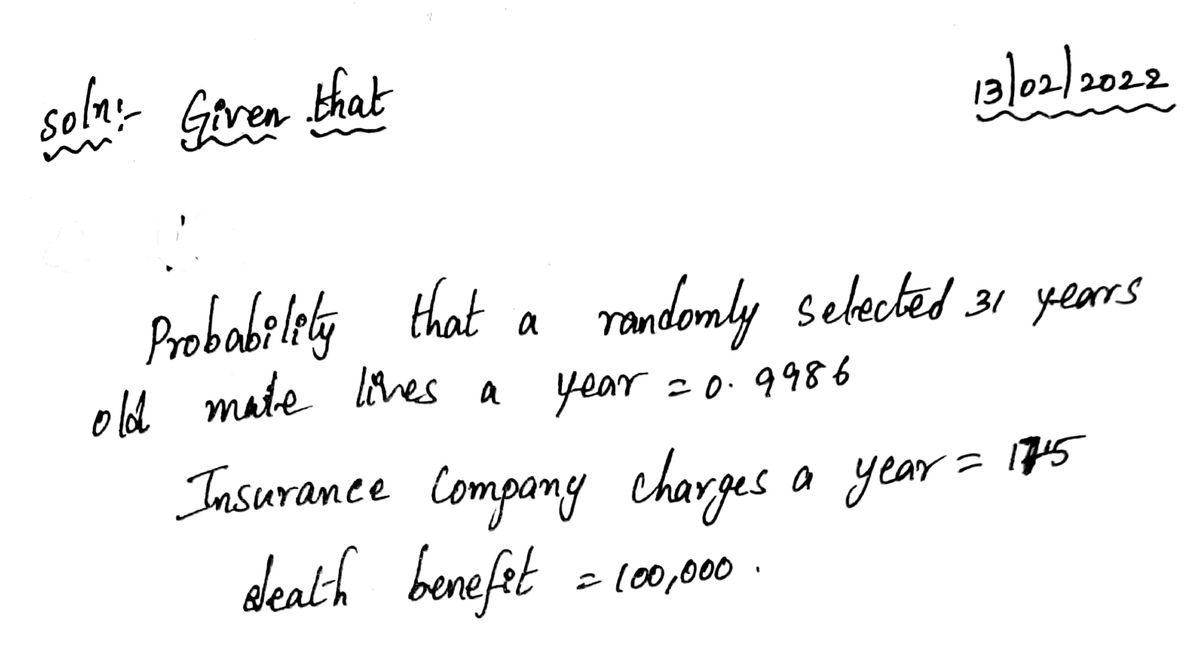 soln:- Given that 13/02/2022
Probability that a randomly selected 31 years
old male lives a year = 0.9986
Insurance Company charges a year = 175
death benefit = 100,000.